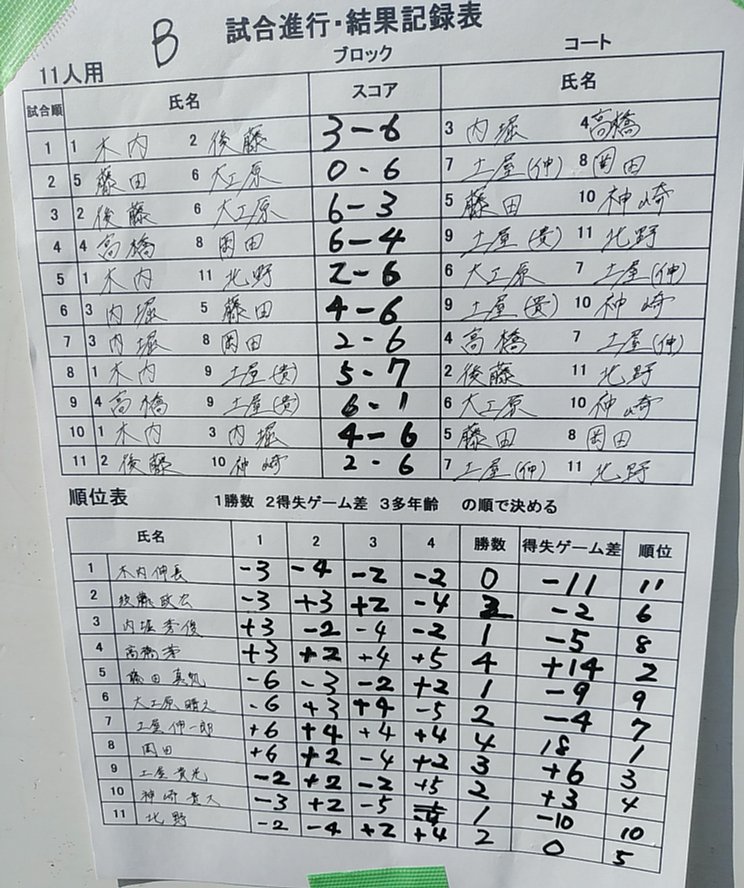 B 試合進行・結果記録表
11人用 ブロック コート
試合順 氏名 スコア 氏名
1 1 木内 2 後藤 3-6 3 内堀 4 高橋
2 5 藤田 6 大工原 0-6 7 土屋(伸) 8 岡田
3 2 後藤 6 大工原 6-3 5 藤田 10 神崎
4 4 高橋 8 岡田 6-4 9 土屋(貴) 11 北野
5 1 木内 11 北野 2-6 6 大工原 7 土屋(伸)
6 3 内堀 5 藤田 4-6 9 土屋(貴) 10 神崎
7 3 内堀 8 岡田 2-6 4 高橋 7 土屋(伸)
8 1 木内 9 土屋(貴) 5-7 2 後藤 11 北野
9 4 高橋 9 土屋(貴) 6-1 6 大工原 10 神崎
10 1 木内 3 内堀 4-6 5 藤田 8 岡田
11 2 後藤 10 神崎 2-6 7 土屋(伸) 11 北野
順位表 1勝数 2得失ゲーム差 3多年齢 の順で決める
氏名 1 2 3 4 勝数 得失ゲーム差 順位
1 木内伸長 -3 -4 -2 -2 0 -11 11
2 後藤政宏 -3 +3 +2 -4 2 -2 6
3 内堀秀俊 +3 -2 -4 -2 1 -5 8
4 高橋 +3 +2 +4 +5 4 +14 2
5 藤田真 -6 -3 -2 +2 1 -9 9
6 大工原 -6 +3 +4 -5 2 -4 7
7 土屋伸一郎 +6 +4 +4 +4 4 18 1
8 岡田 +6 +2 -4 +2 3 +6 3
9 土屋貴光 -2 +2 -2 +5 2 +3 4
10 神崎貴大 -3 +2 -5 1 -10 10
11 北野 -2 -4 +2 +4 2 0 5